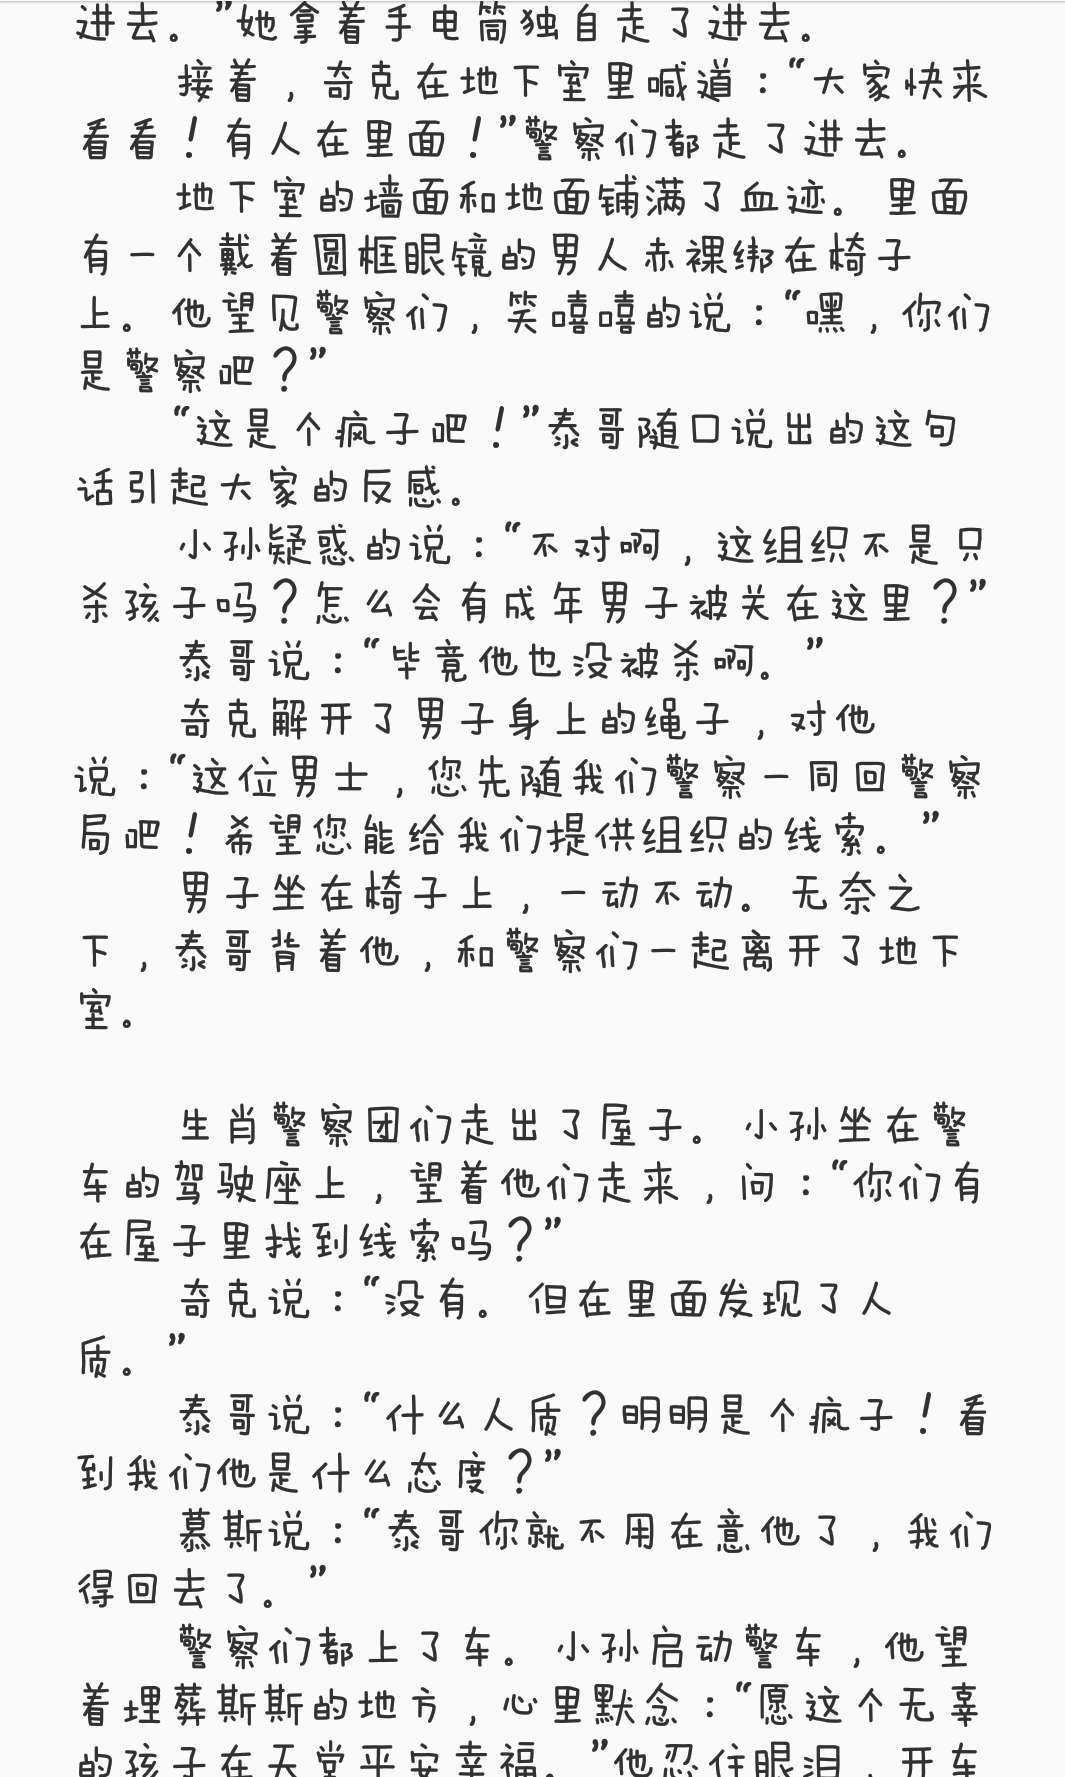 进去。”她拿着手电筒独自走了进去。
接着，奇克在地下室里喊道：“大家快来
看看！有人在里面！”警察们都走了进去。
地下室的墙面和地面铺满了血迹。里面
有一个戴着圆框眼镜的男人赤裸绑在椅子
上。他望见警察们，笑嘻嘻的说：“嘿，你们
是警察吧？”
“这是个疯子吧！”泰哥随口说出的这句
话引起大家的反感。
小孙疑惑的说：“不对啊，这组织不是只
杀孩子吗？怎么会有成年男子被关在这里？”
泰哥说：“毕竟他也没被杀啊。”
奇克解开了男子身上的绳子，对他
说：“这位男士，您先随我们警察一同回警察
局吧！希望您能给我们提供组织的线索。”
男子坐在椅子上，一动不动。无奈之
下，泰哥背着他，和警察们一起离开了地下
室。
生肖警察团们走出了屋子。小孙坐在警
车的驾驶座上，望着他们走来，问：“你们有
在屋子里找到线索吗？”
奇克说：“没有。但在里面发现了人
质。”
泰哥说：“什么人质？明明是个疯子！看
到我们他是什么态度？”
慕斯说：“泰哥你就不用在意他了，我们
得回去了。”
警察们都上了车。小孙启动警车，他望
着埋葬斯斯的地方，心里默念：“愿这个无辜
的孩子在天堂平安幸福。”他忍住眼泪，开车